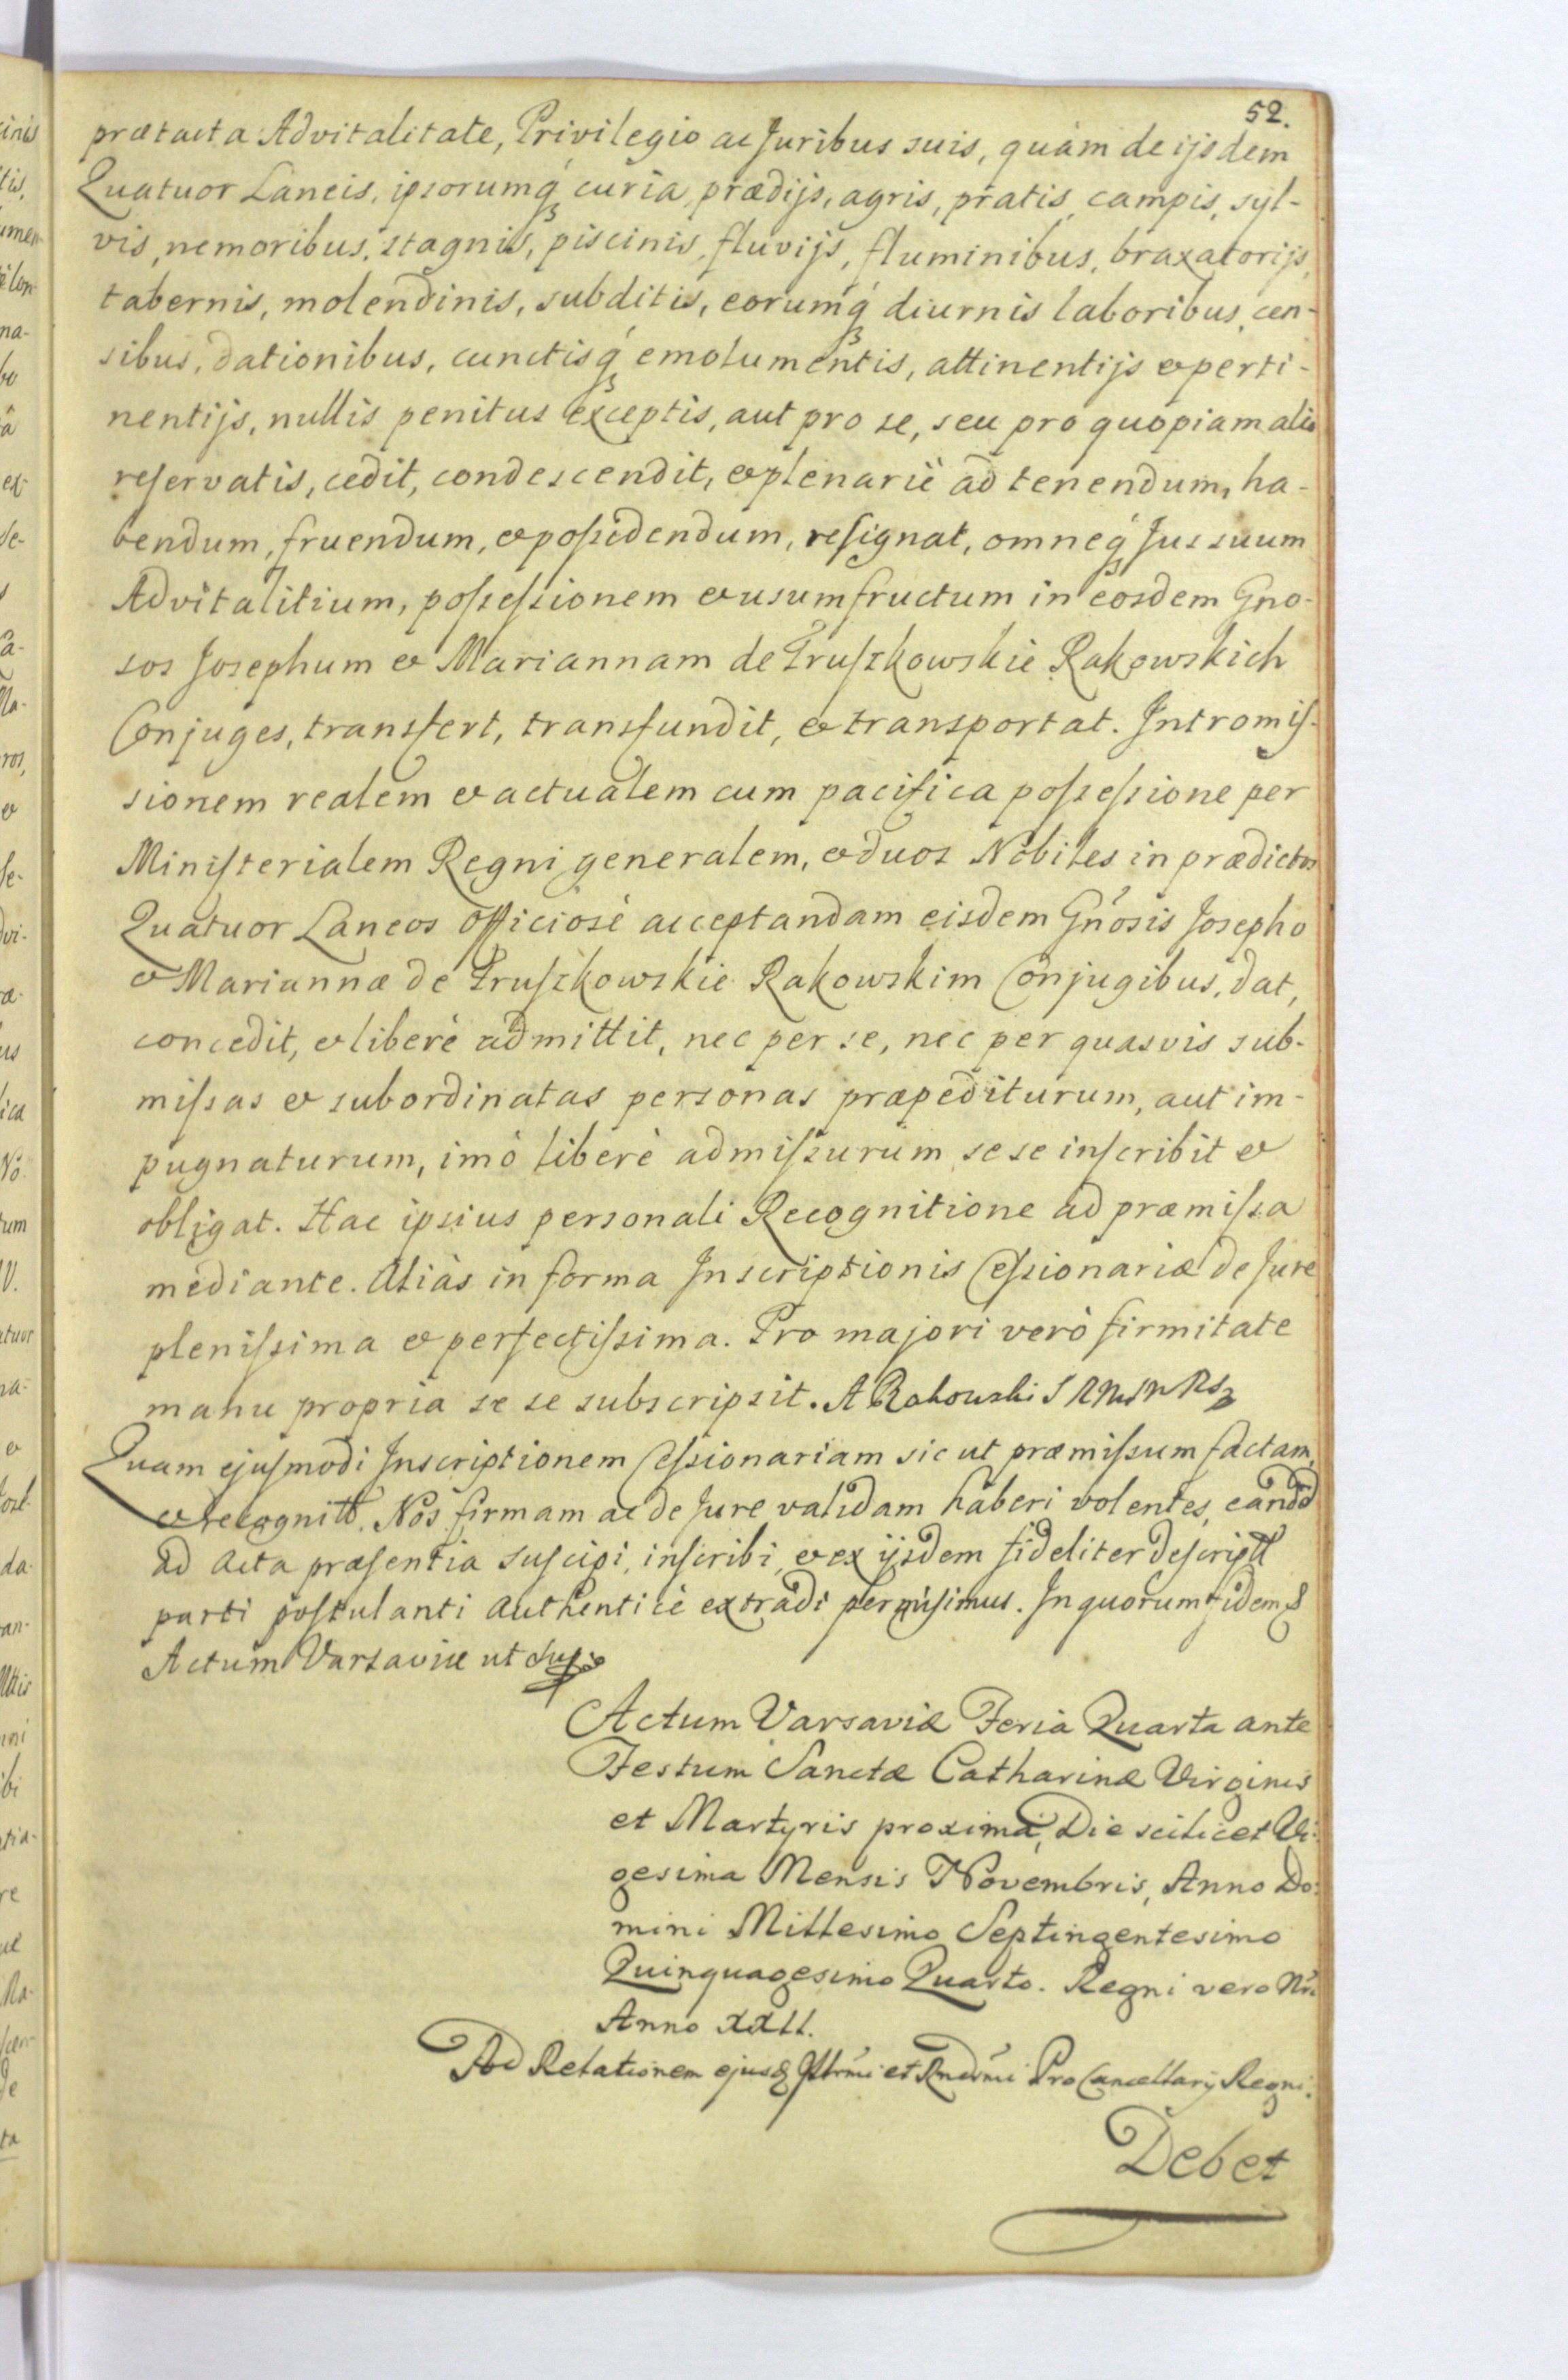 52.
prætacta Advitalitate, Privilegio ac Juribus suis, quàm de ijsdem
Quatuor Laneis, ipsorumq́ꝫ curia, prædijs, agris, pratis, campis, syl-
vis, nemoribus, stagnis, piscinis, fluvijs, fluminibus, braxatorijs,
tabernis, molendinis, subditis, eorumq́ꝫ diurnis laboribus, cen-
sibus, dationibus, cunctisq́ꝫ emolumentis, attinentijs & perti-
nentijs, nullis penitus exceptis, aut pro se, seu pro quopiam alio
reſervatis, cedit, condescendit, & plenariè ad tenendum, ha-
bendum, fruendum, & poſsidendum, reſignat, omneq́ꝫ Jus suum
Advitalitium, poſseſsionem & usumfructum in eosdem Gno-
sos Josephum & Mariannam de Truſzkowskie Rakowskich
Conjuges, transfert, transfundit, & transportat. Intromiſ-
sionem realem & actualem cum pacifica poſseſsione per
Miniſterialem Regni generalem, & duos Nobiles in prædictos
Quatuor Laneos officiosè acceptandam eisdem Gńosis Josepho
& Mariannæ de Truſzkowskie Rakowskim Conjugibus, dat,
concedit, & liberè admittit, nec per se, nec per quasvis sub-
miſsas & subordinatas personas præpediturum, aut im-
pugnaturum, imò liberè admiſsurum sese inſcribit &
obligat. Hac ipsius personali Recognitione ad præmiſsa
mediante. Aliàs in forma Inscriptionis Ceſsionariæ de Jure
pleniſsima & perfectiſsima. Pro majori verò firmitate
manu propria se se subscripsit. A Rakowski
Quam ejuſmodi Inscriptionem Ceſsionariam sic ut præmiſsum factam,
& recognitt. Nos firmam ac de Jure validam haberi volentes, eandd
ad Acta præſentia suscipi, inſcribi, & ex ijsdem fideliter deſcriptt
parti poſtulanti Authenticè extradi permisimus. In quorum fidem &
Actum Varsaviæ ut sup.
Actum Varsaviæ Feria Quarta ante
Festum Sanctæ Catharinæ Virginis
et Martyris proxima, Die scilicet Vi-
gesima Mensis Novembris, Anno Do-
mini Millesimo Septingentesimo
Quinquagesimo Quarto. Regni vero Nri
Anno XXII.
Ad Relationem ejusd Illrmi et Rndmi Pro Cancellarij Regni.
Debet